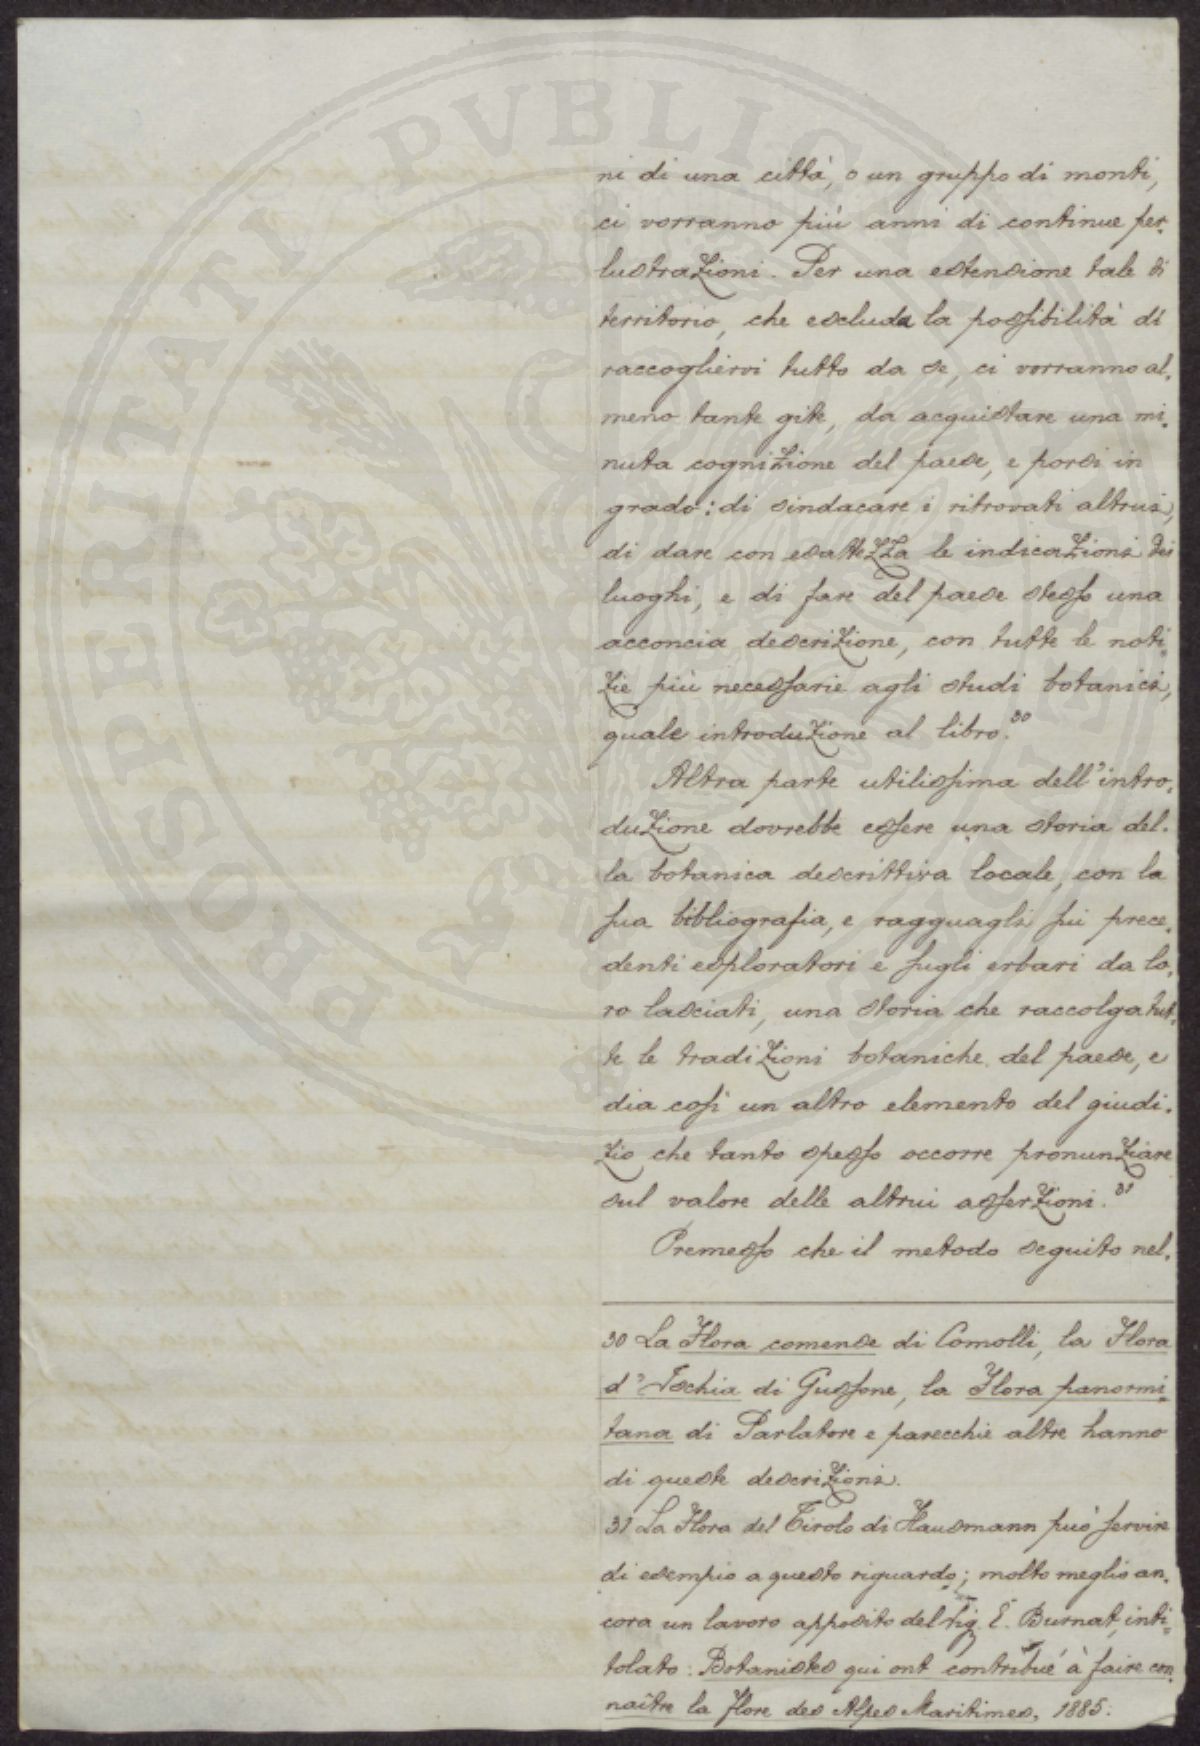 ni di una città, o un gruppo di monti,
ci vorranno più anni di continue per-
lustrazioni. Per una estensione tale di
territorio, che escluda la possibilità di
raccogliervi tutto da se, ci vorranno al-
meno tante gite, da acquistare una mi-
nuta cognizione del paese, e porsi in
grado: di sindacare i ritrovati altrui,
di dare con esattezza le indicazioni dei
luoghi, e di fare del paese stesso una
acconcia descrizione, con tutte le noti-
zie più necessarie agli studi botanici,
quale introduzione al libro.30
Altra parte utilissima dell'intro-
duzione dovrebbe essere una storia del-
la botanica descrittiva locale, con la
sua bibliografia, e ragguagli sui prece-
denti esploratori e sugli erbari da lo-
ro lasciati, una storia che raccolga tut-
te le tradizioni botaniche del paese, e
dia così un altro elemento del giudi-
zio che tanto spesso occorre pronunziare
sul valore delle altrui asserzioni.31
Premesso che il metodo seguito nel-
30 La Flora comense di Comolli, la Flora
d'Ischia di Gussone, la Flora panormi-
tana di Parlatore e parecchie altre hanno
di queste descrizioni.
31 La Flora del Tirolo di Hausmann può servire
di esempio a questo riguardo; molto meglio an-
cora un lavoro apposito del sig. E. Burnat, inti-
tolato: Botanistes qui ont contribué à faire con-
naître la flore des Alpes Maritimes, 1885.
PROSPERITATI PVBLICAE